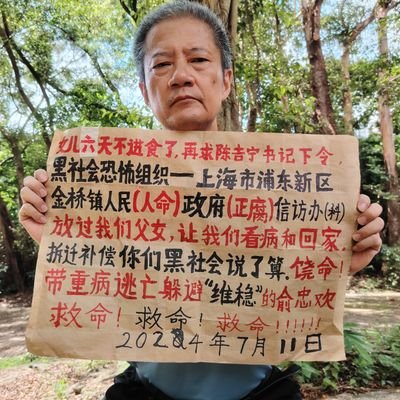 女儿六天不进食了,再求陈吉宁书记下令,
黑社会恐怖组织—上海市浦东新区
金桥镇人民(人命)政府(正腐)信访办(科)
放过我们父女,让我们看病和回家.
拆迁补偿你们黑社会说了算.饶命!
带重病逃亡躲避“维稳”的俞忠欢
救命!救命!救命!!!!!!
2024年7月11日